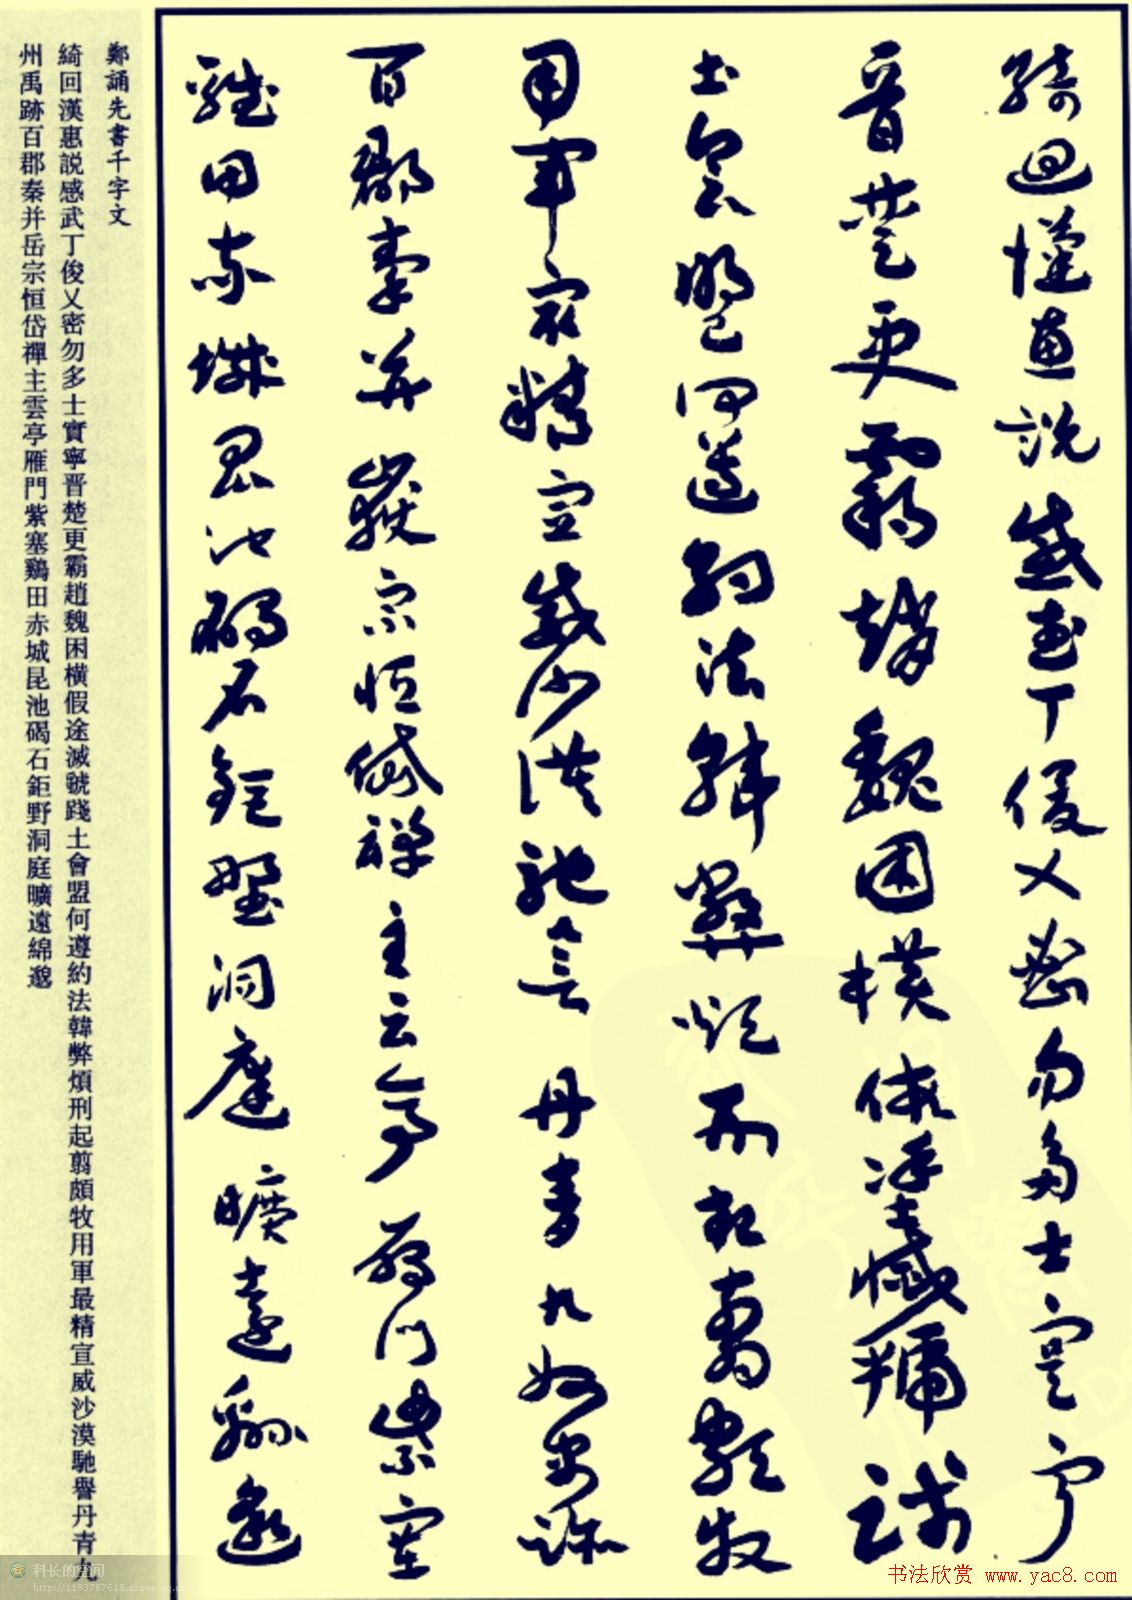 綺迴漢惠說感武丁俊乂密勿多士寔寧
晉楚更霸趙魏困橫假途滅虢踐
土會盟何遵約法韓弊煩刑起翦頗牧
用軍最精宣威沙漠馳譽丹青九州禹跡
百郡秦并嶽宗恒岱禪主云亭雁門紫塞
雞田赤城昆池碣石鉅野洞庭曠遠綿邈
鄭誦先書千字文
綺回漢惠説感武丁俊乂密勿多士實寧晋楚更霸趙魏困橫假途滅虢踐土會盟何遵約法韓弊煩刑起翦頗牧用軍最精宣威沙漠馳譽丹青九
州禹跡百郡秦并岳宗恒岱禪主雲亭雁門紫塞鷄田赤城昆池碣石鉅野洞庭曠遠綿邈
科长的空间
http://1193767618.qzone.qq.com
书法欣赏 www.yac8.com